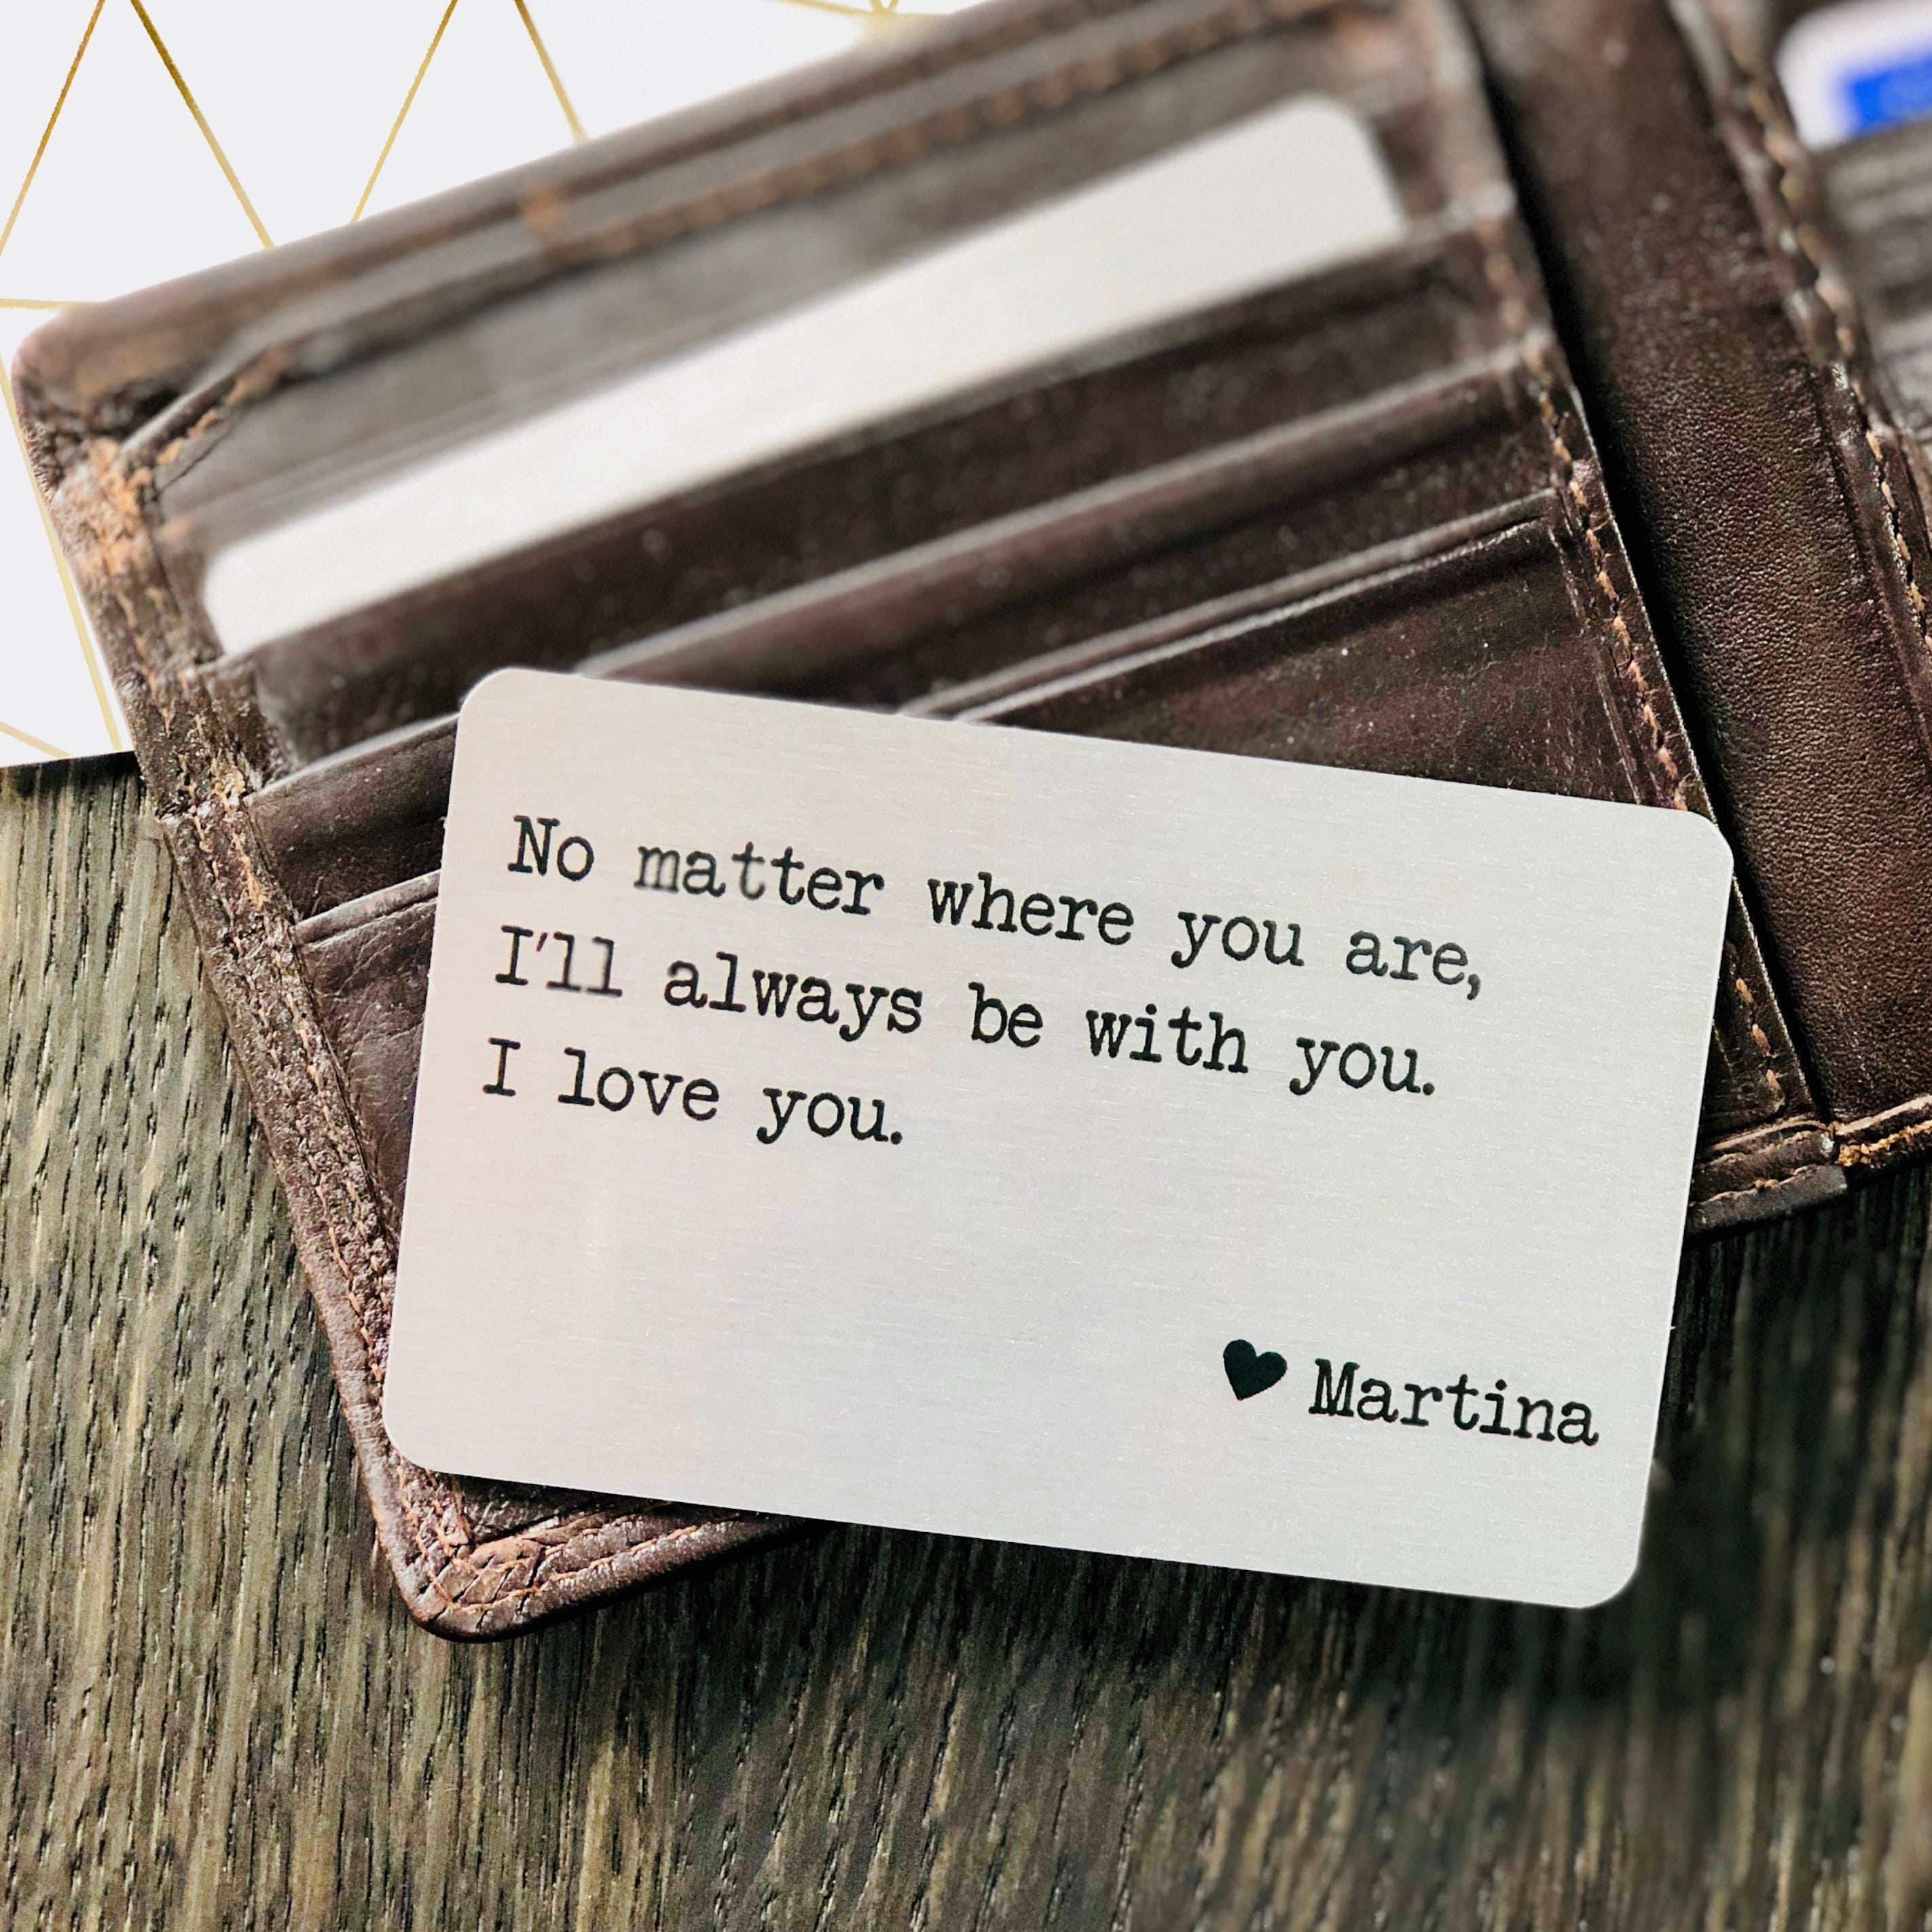 No matter where you are,
I'll always be with you.
I love you.
♥ Martina